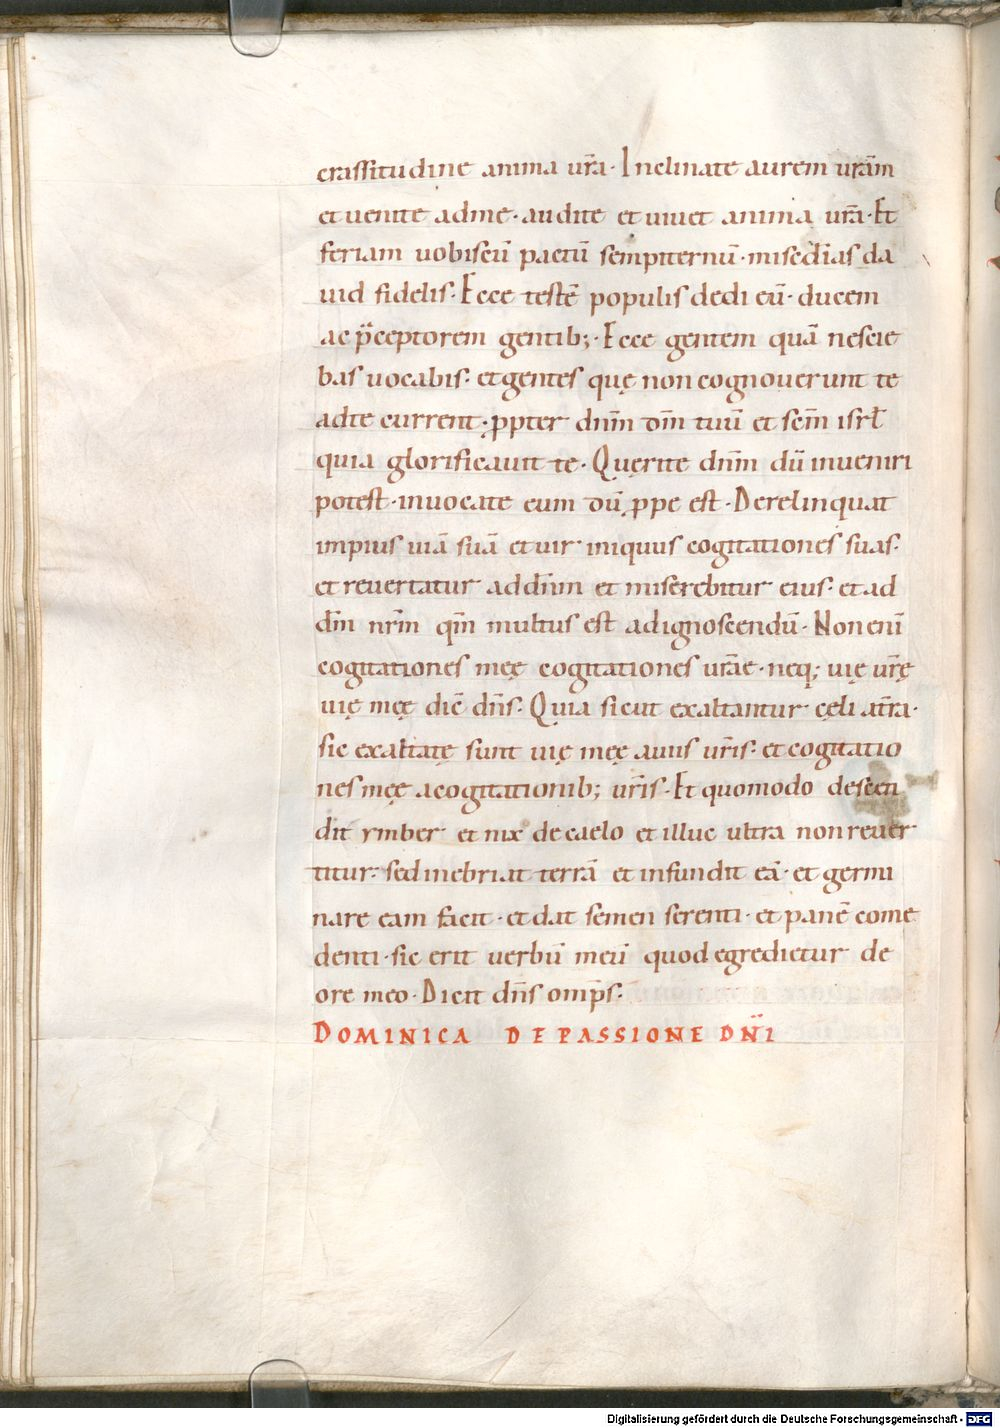 crassitudine anima ur̄a· Inclinate aurem urām
et uenite ad me· audite et uiuet anima ur̄a· Et
feriam uobiscū pactū sempiternū· misc̄dias da
uid fidelis· Ecce testē populis dedi eū· ducem
ac p̄ceptorem gentib;· Ecce gentem quā nescie
bas uocabis· et gentes quę non cognouerunt te
ad te current· ꝓpter dn̄m dm̄ tuū et sc̄m isrł
quia glorificauit te· Quęrite dn̄m dū inueniri
potest· inuocate eum dū ꝓpe est· Derelinquat
impius uiā suā et uir iniquus cogitationes suas·
et reuertatur ad dn̄m et miserebitur eius· et ad
dm̄ nrm̄ qm̄ multus est ad ignoscendū· Non enī
cogitationes męę cogitationes ur̄ae· neq; uię ur̄ę
uię męę dic̄ dn̄s· Quia sicut exaltantur cęli a tr̄a·
sic exaltatę sunt uię męę a uiis ur̄is· et cogitatio
nes męę a cogitationib; ur̄is· Et quomodo descen
dit ymber et nix de caelo et illuc ultra non reuer
titur· sed inebriat terrā et infundit eā· et germi
nare eam facit· et dat semen serenti· et panē come
denti· sic erit uerbū meū quod egredietur de
ore meo· Dicit dn̄s omp̄s·
DOMINICA DE PASSIONE DN̄I
Digitalisierung gefördert durch die Deutsche Forschungsgemeinschaft - DFG